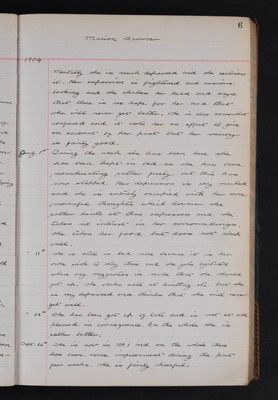 6
Marion Brown
1904
Mentally she is much depressed and she realises
it. Her expression is frightened and anxious
looking and she shakes her head and says
that there is no hope for her and that
she will never get better. She is also somewhat
confused and it costs her an effort to give
an account of her past but her memory
is fairly good.
Aug. 1st During the week she has been here she
has been kept in bed as she has been
menstruating rather freely but this has
now stopped. Her depression is very marked
and she is entirely occupied with her own
mournful thoughts which however she
rather hunts at than expresses and she
takes no interest in her surroundings.
She takes her food but does not sleep
well.
" 11th She is still in bed and insists it is her
own wish to stay there and she gets agitated
when any suggestion is made that she should
get up. She works well at knitting etc. but she
is very depressed and thinks that she will never
get well.
" 22nd She has been got up of late and is not at all
pleased in consequence. On the whole she is
rather better.
Sept. 20th She is now in and on the whole there
has been some improvement during the past
few weeks. She is fairly cheerful.